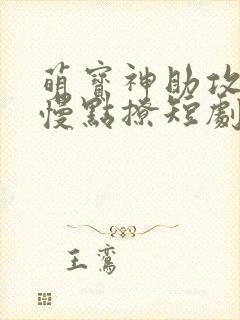 萌寶神助攻
慢點撩短劇
王鸞